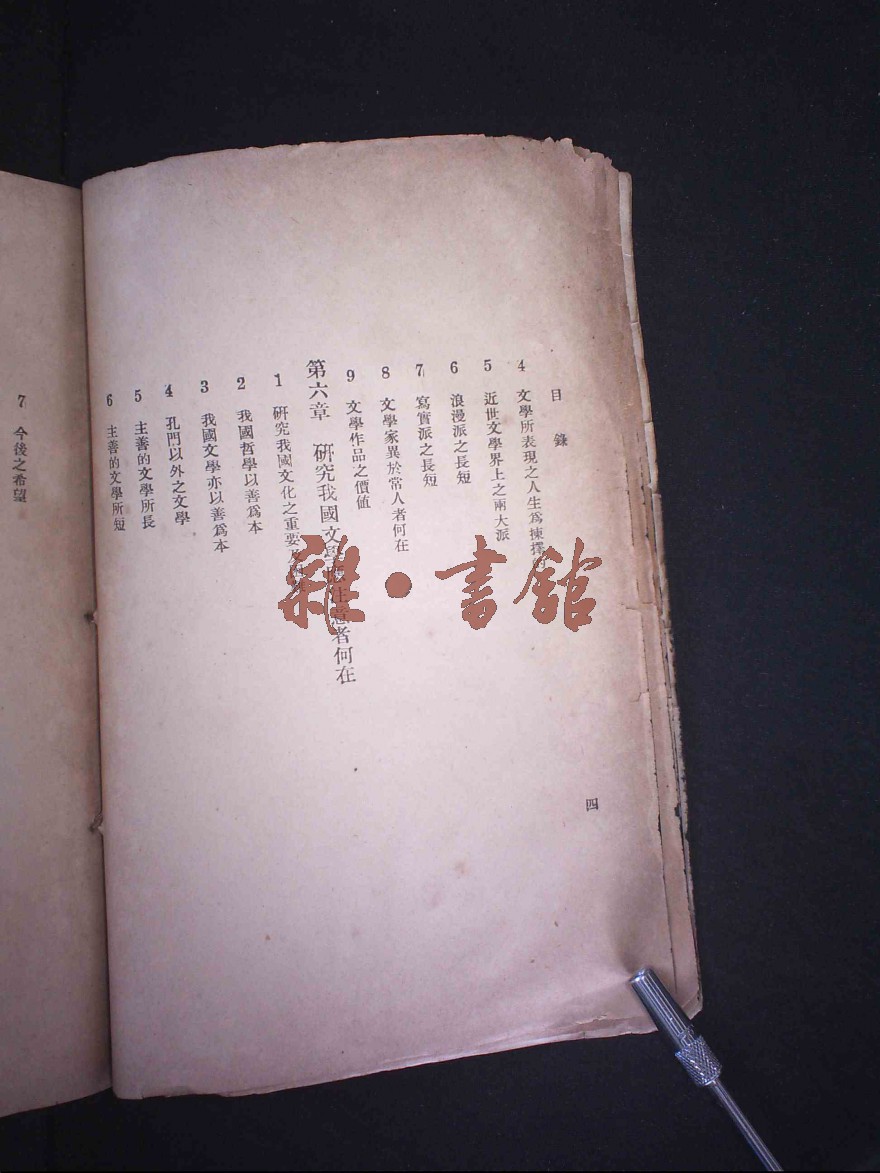 目錄
4 文學所表現之人生爲揀擇
5 近世文學界上之兩大派
6 浪漫派之長短
7 寫實派之長短
8 文學家異於常人者何在
9 文學作品之價値
第六章 研究我國文學應注意者何在
1 硏究我國文化之重要及
2 我國哲學以善爲本
3 我國文學亦以善爲本
4 孔門以外之文學
5 主善的文學所長
6 主善的文學所短
7 今後之希望
四
雜·書館